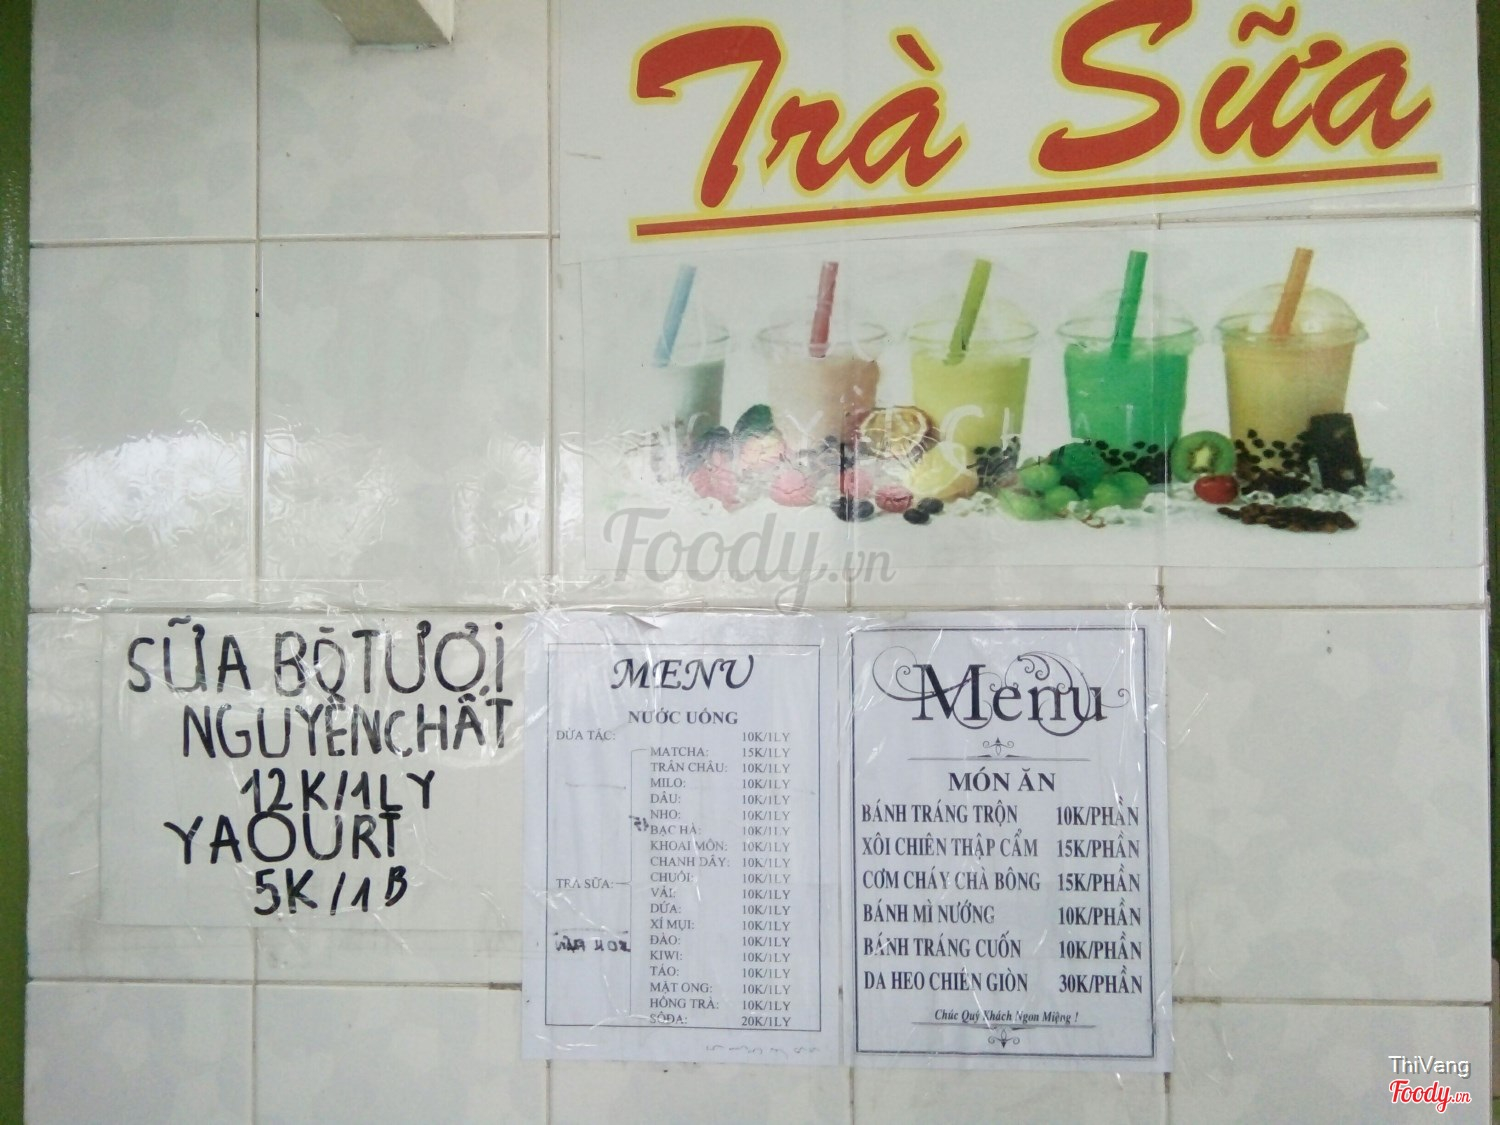 Trà Sữa
Foody.vn
SỮA BÒ TƯƠI
NGUYÊN CHẤT
12K/1LY
YAOURT
5K/1B
MENU
NƯỚC UỐNG
DỪA TẮC: 10K/1LY
MATCHA: 15K/1LY
TRÂN CHÂU: 10K/1LY
MILO: 10K/1LY
DÂU: 10K/1LY
NHO: 10K/1LY
BẠC HÀ: 10K/1LY
KHOAI MÔN: 10K/1LY
CHANH DÂY: 10K/1LY
TRÀ SỮA: CHUỐI: 10K/1LY
VẢI: 10K/1LY
DỨA: 10K/1LY
XÍ MỤI: 10K/1LY
ĐÀO: 10K/1LY
KIWI: 10K/1LY
TÁO: 10K/1LY
MẬT ONG: 10K/1LY
HỒNG TRÀ: 10K/1LY
SÔĐA: 20K/1LY
Menu
MÓN ĂN
BÁNH TRÁNG TRỘN 10K/PHẦN
XÔI CHIÊN THẬP CẨM 15K/PHẦN
CƠM CHÁY CHÀ BÔNG 15K/PHẦN
BÁNH MÌ NƯỚNG 10K/PHẦN
BÁNH TRÁNG CUỐN 10K/PHẦN
DA HEO CHIÊN GIÒN 30K/PHẦN
Chúc Quý Khách Ngon Miệng !
ThiVang
Foody.vn